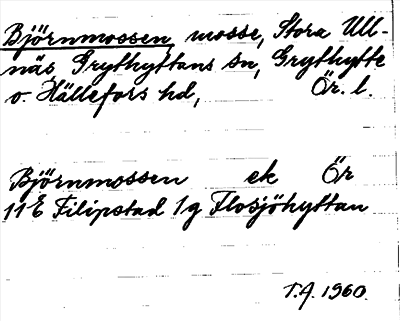 Björnmossen, mosse, Stora Ull-
näs Grythyttans sn, Grythytte
o. Hällefors hd, Ör. l.
Björnmossen ek Ör
11 E Filipstad 1g Flosjöhyttan
T.A. 1960.